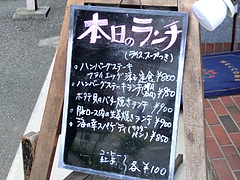 本日のランチ
(ライス、スープつき)
ハンバーグステーキ
フライエッグ添え定食 ¥800
ハンバーグステーキランチ
ホタテ貝のバター焼きランチ ¥900
豚ロース肉の生姜焼ランチ ¥900
海の幸スパゲティ(サラダ・パン) ¥850
コーヒー
紅茶 各¥100